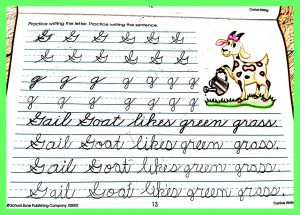 Cursive Writing
Practice writing the letter. Practice writing the sentence.
G G G G G G
G G G G G G
g g g g g g
g g g g g g
Gail Goat likes green grass.
Gail Goat likes green grass.
Gail Goat likes green grass.
Gail Goat likes green grass.
© School Zone Publishing Company
13
Cursive Writing